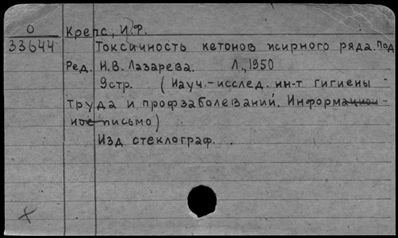 О Крепс, И.Ф.
33644 Токсичность кетонов жирного ряда. Под
Ред. Н.В. Лазарева. Л., 1950
9стр. (Науч.-исслед. ин-т гигиены
труда и профзаболеваний. Информацион-
ное письмо)
Изд. стеклограф.